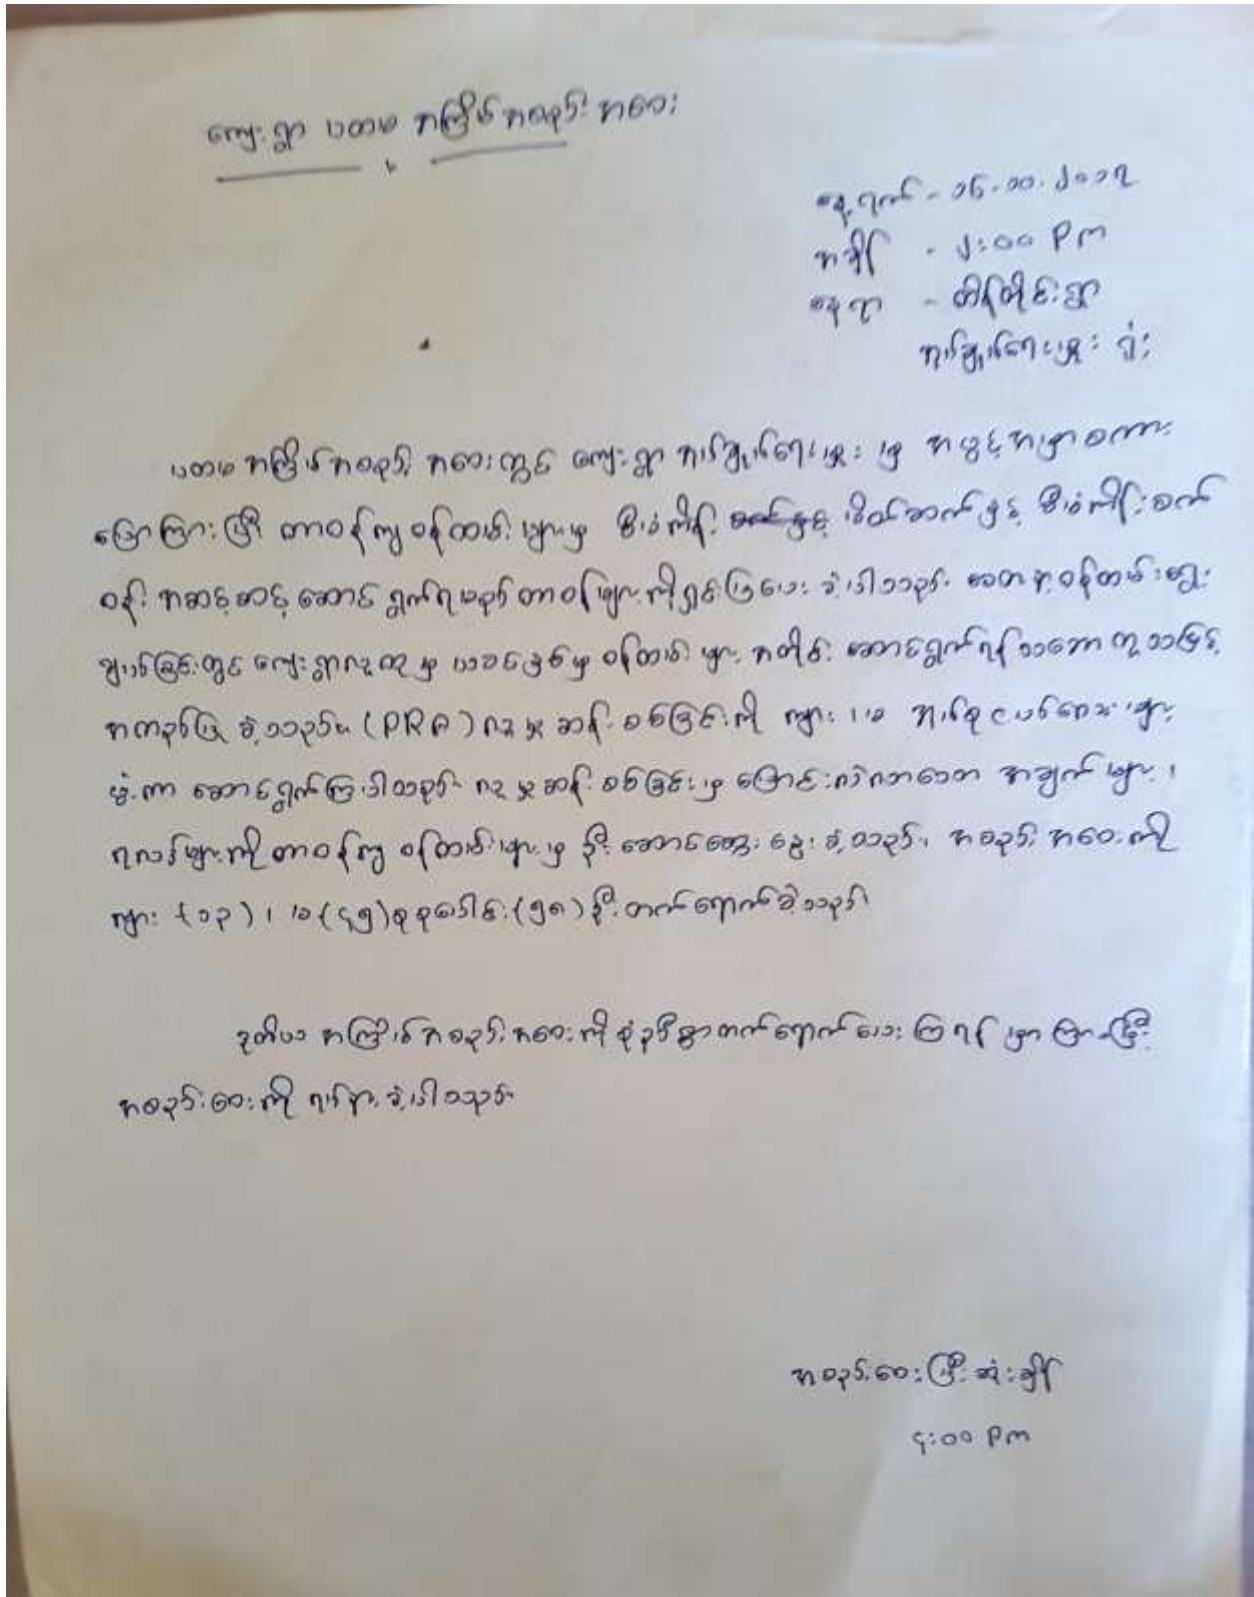 ကျေးရွာ ပထမ အကြိမ် အစည်း အဝေး
နေ့ရက် - ၁၆.၁၀.၂၀၁၇
အချိန် - ၂:၀၀ Pm
နေရာ - ထိန်တိုင်းရွာ
အုပ်ချုပ်ရေးမှူး ရုံး
ပထမ အကြိမ် အစည်း အဝေးတွင် ကျေးရွာ အုပ်ချုပ်ရေးမှူး မှ အဖွင့် အမှာ စကား
ပြောကြားပြီး တာဝန်ကျ ဝန်ထမ်း များမှ စီမံကိန်း မိတ်ဆက် နှင့် စီမံကိန်း စက်
ဝန်း အဆင့်ဆင့် ဆောင်ရွက်ရမည့် တာဝန်များ ကိုရှင်းပြပေး ခဲ့ပါသည်။ စေတနာ့ဝန်ထမ်း ရွေး
ချယ်ခြင်းတွင် ကျေးရွာလူထု မှ ယခင်နှစ်မှ ဝန်ထမ်း များ အတိုင်း ဆောင်ရွက်ရန် သဘောတူသဖြင့်
အတည်ပြု ခဲ့သည်။ (PRA) လူမှု ဆန်းစစ်ခြင်းကို ကျား၊ မ အုပ်စု ငယ်လေး များ
ဖွဲ့ကာ ဆောင်ရွက်ကြပါသည်။ လူမှုဆန်းစစ်ခြင်းမှ ပြောင်းလဲလာသော အချက် များ၊
ရလဒ်များကို တာဝန်ကျ ဝန်ထမ်းများ မှ ဦးဆောင်ဆွေးနွေး ခဲ့သည်။ အစည်း အဝေး ကို
ကျား (၁၃)၊ မ (၄၅) စုစုပေါင်း (၅၈) ဦး တက်ရောက်ခဲ့သည်။
ဒုတိယ အကြိမ် အစည်း အဝေး ကို စုံညီစွာ တက်ရောက် ပေး ကြရန် မှာ ကြားပြီး
အစည်းဝေး ကို ရုပ်သိမ်း ခဲ့ပါသည်။
အစည်းဝေး ပြီးဆုံးချိန်
၄:၀၀ Pm